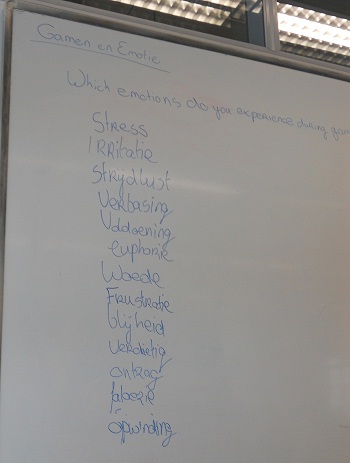 Gamen en Emotie
Which emotions do you experience during
Stress
IRRitatie
Strydlust
Verbasing
Voldoening
euphorie
Woede
Frustratie
blijheid
Verdrietig
opwinding